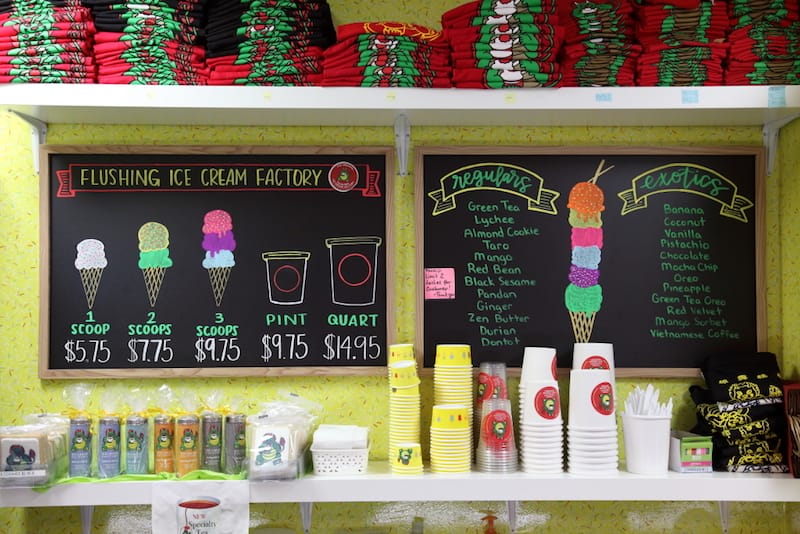 FLUSHING ICE CREAM FACTORY
1 SCOOP $5.75
2 SCOOPS $7.75
3 SCOOPS $9.75
PINT $9.75
QUART $14.95
regulars
Green Tea
Lychee
Almond Cookie
Taro
Mango
Red Bean
Black Sesame
Pandan
Ginger
Zen Butter
Durian
Dontot
exotics
Banana
Coconut
Vanilla
Pistachio
Chocolate
Mocha Chip
Oreo
Pineapple
Green Tea Oreo
Red Velvet
Mango Sorbet
Vietnamese Coffee
Limit 2
NEW
Specialty
Tea